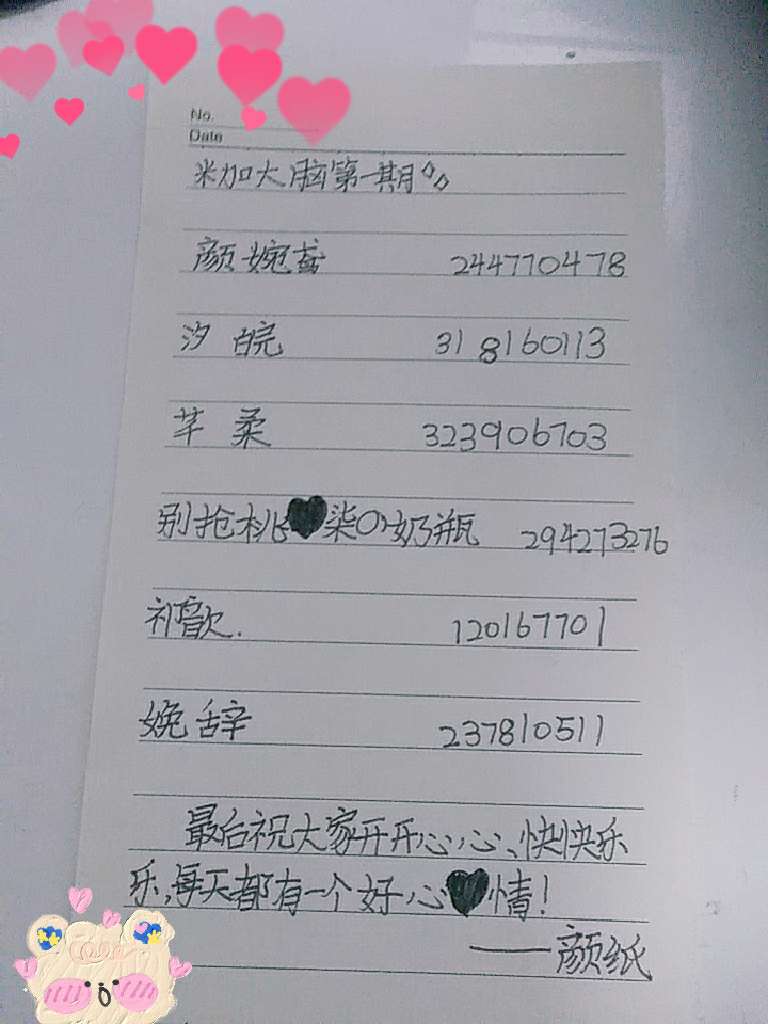 No.
Date
米加大脑第一期
颜婉鸢 244770478
汐皖 318160113
芊柔 323906703
别抢桃🖤柒の奶瓶 294273276
祁歆. 120167701
婏辞 237810511
最后祝大家开开心心、快快乐
乐,每天都有一个好心🖤情!
——颜纸